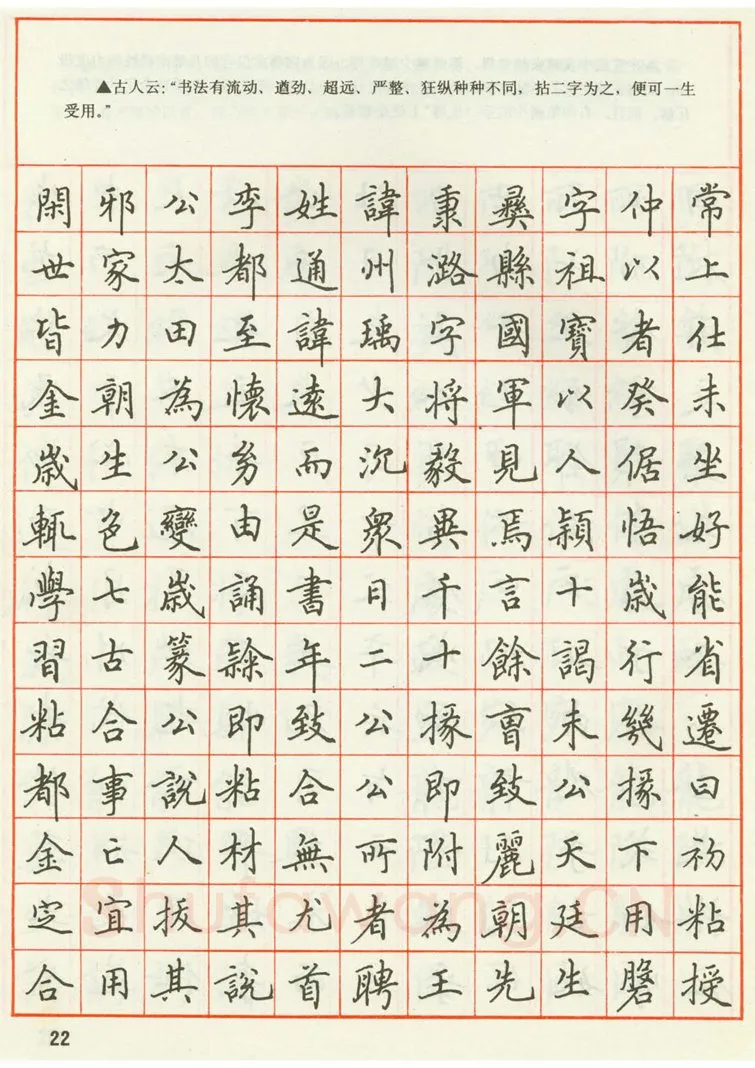 ▲古人云:“书法有流动、遒劲、超远、严整、狂纵种种不同,拈二字为之,便可一生
受用。”
閑邪公李姓諱秉彝字仲常
世家太都通州潞縣祖以上
皆力田至諱瑀字國寶者仕
金朝為懷遠大將軍以癸未
歲生公㓜而沉毅見人倨坐
輒色變由是衆異焉穎悟好
學七歲誦書日千言十歲能
習古篆隸年二十餘謁行省
粘合公即致公掾曹未幾遷
都事說粘合公即致公掾曰
金亡人材無所附麗天下初
定宜拔其尤者為朝廷用粘
合用其說首聘王先生磐授
Shufawang.CN
22